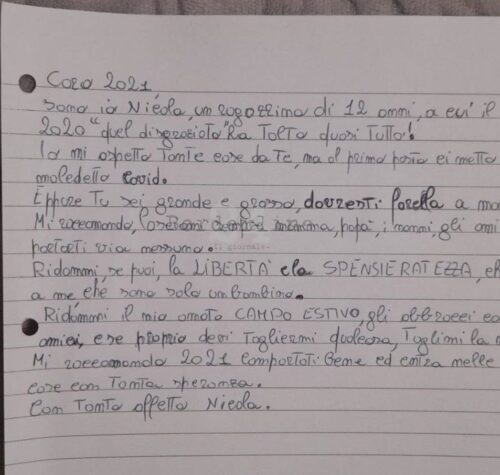 Caro 2021,
sono io Nicola, un ragazzino di 12 anni, a cui il
2020 "quel disgraziato" ha tolto quasi tutto!
Io mi aspetto tante cose da Te, ma al primo posto ci metto
maledetto Covid.
Eppure Tu sei grande e grosso, dovresti farcela a
Mi raccomando, mamma, papà, i nonni, gli
portarti via nessuno.
Ridammi, se puoi, la LIBERTÀ e la SPENSIERATEZZA,
a me, che sono solo un bambino.
Ridammi il mio amato CAMPO ESTIVO, gli abbracci
amici, e se proprio devi togliermi qualcosa, toglimi la
Mi raccomando 2021 comportati bene ed entra nelle
case con tanta speranza.
Con tanto affetto Nicola.
il giornale